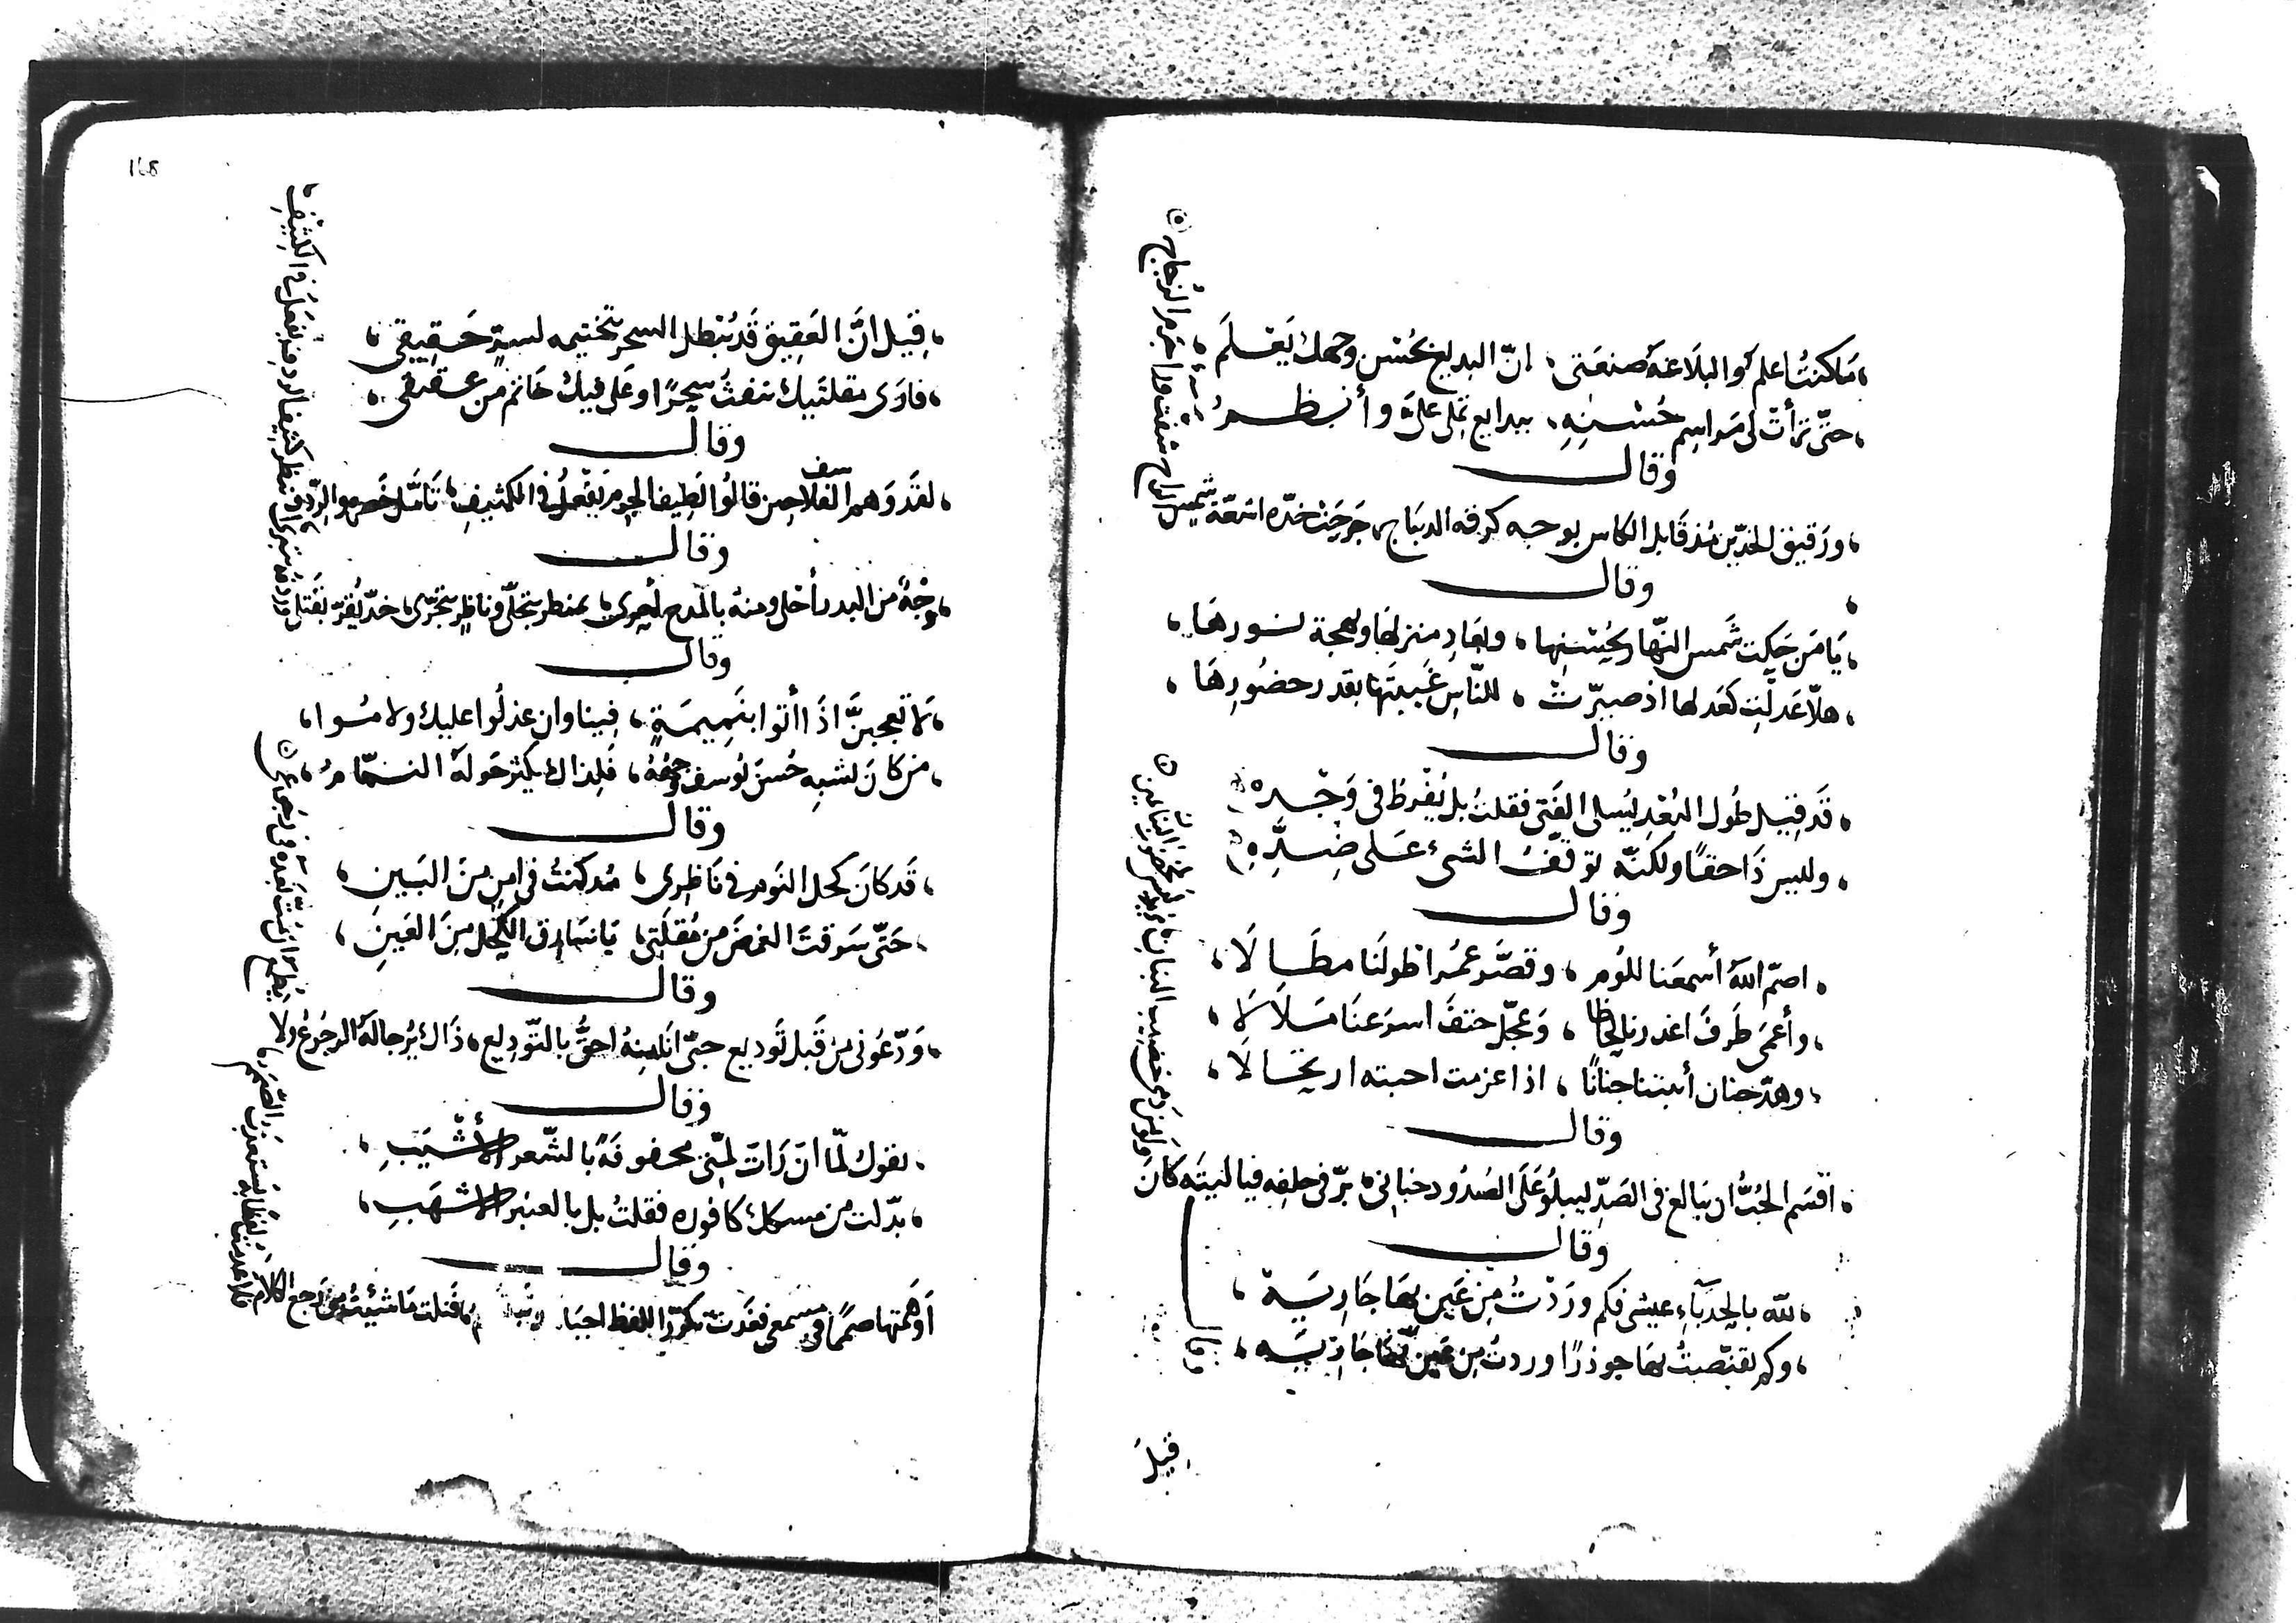 ما كنت اعلم والبلاغة صنعتي، ان البديع بحسن وجهك يعلم
حتى تراءت لي مراسم حسنه، ببدايع تملي علي وأنظم
وقال
ورقيق الخدين مذ قابل الكاس بوجه كرقة الديباج، جرحت خده اشعة شمس الراح شفت من وراء جرم الزجاج
وقال
يا من حكت شمس النهار بحسنها، وبعاد منزلها وبهجة نورها
هلا عدلت كعدلها اذ صيرت، للناس غيبتها بقدر حضورها
وقال
قد قيل طول البعد يسلي الفتى فقلت بل يفرط في وجده
وليس ذا حقا ولكنه توقف الشيء على ضده
وقال
اصم الله أسمعنا للوم، وقصر عمر اطولنا مطالا
وأعمى طرف اغدرنا لحاظا، وعجل حتف اسرعنا ملالا
وهد جنان أثبتنا جنانا، اذا عزمت احبته ارتحالا
وقال
اقسم الحب ان يبالغ في الصد ليبلو على الصدود جناني، بر في حلفه فيا ليته كان
وقال
لله بالحدباء عيشي فكم وردت من عين بها جاريه
وكم تقنصت بها جوذرا وردت من عين بها جاريه
وقال
قيل
168
قيل ان العقيق قد يبطل السحر بتختيمه لسر حقيقي
فارى مقلتيك تنفث سحرا وعلى فيك خاتم من عقيق
وقال
لقد وهم الفلاسف حين قالوا لطيف الجرم يفعل في الكثيف، تأمل خصره والردف
وقال
وجه من البدر أحلى ومنه بالمدح أحرى، بمنظر يتجلى وناظر يتجرى، خد يقر بقتلي
وقال
لا تعجبن اذا أتوا بنميمة، فينا وان عذلوا عليك ولاموا
من كان يشبه حسن يوسف وجهه، فلذاك يكثر حوله النمام
وقال
قد كان كحل النوم في ناظري، مذ كنت في امن من البين
حتى سرقت الغمض من مقلتي، يا سارق الكحل من العين
وقال
ودعوني من قبل توديع حبي انه احق بالتوديع، ذاك يرجا له الرجوع ولا
وقال
تقول لما ان رات لمتي محفوفة بالشعر الأشيب
بدلت من مسكك كافوره فقلت بل بالعنبر الاشهب
وقال
أوهمتها صمما في مسمعي فغدت تكرر اللفظ احيانا